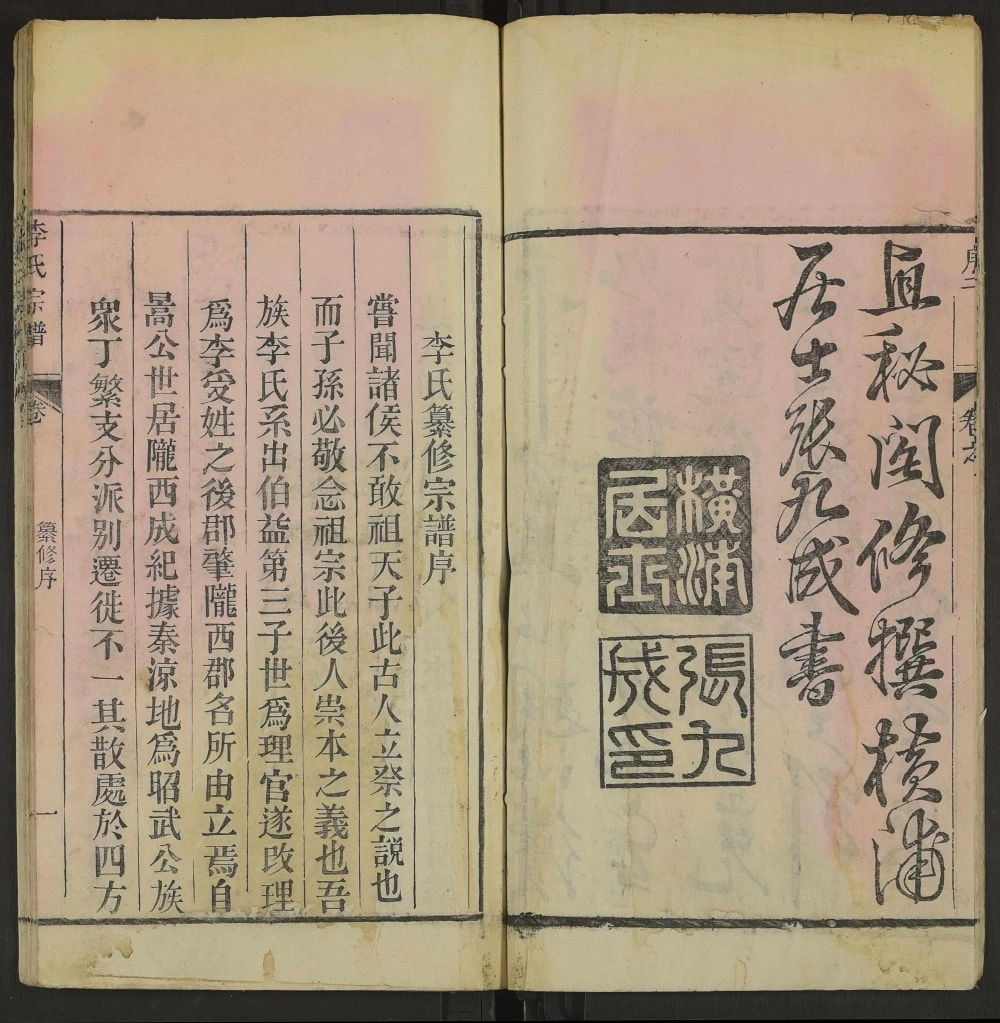 序二
卷之
直秘閣修撰橫浦
居士張九成書
橫浦
居士
張九
成印
李氏纂修宗譜序
嘗聞諸侯不敢祖天子此古人立祭之説也
而子孫必敬念祖宗此後人崇本之義也吾
族李氏系出伯益第三子世爲理官遂改理
爲李受姓之後郡肇隴西郡名所由立焉自
暠公世居隴西成紀據秦涼地爲昭武公族
衆丁繁支分派別遷徙不一其散處於四方
李氏宗譜
卷
纂修序
一